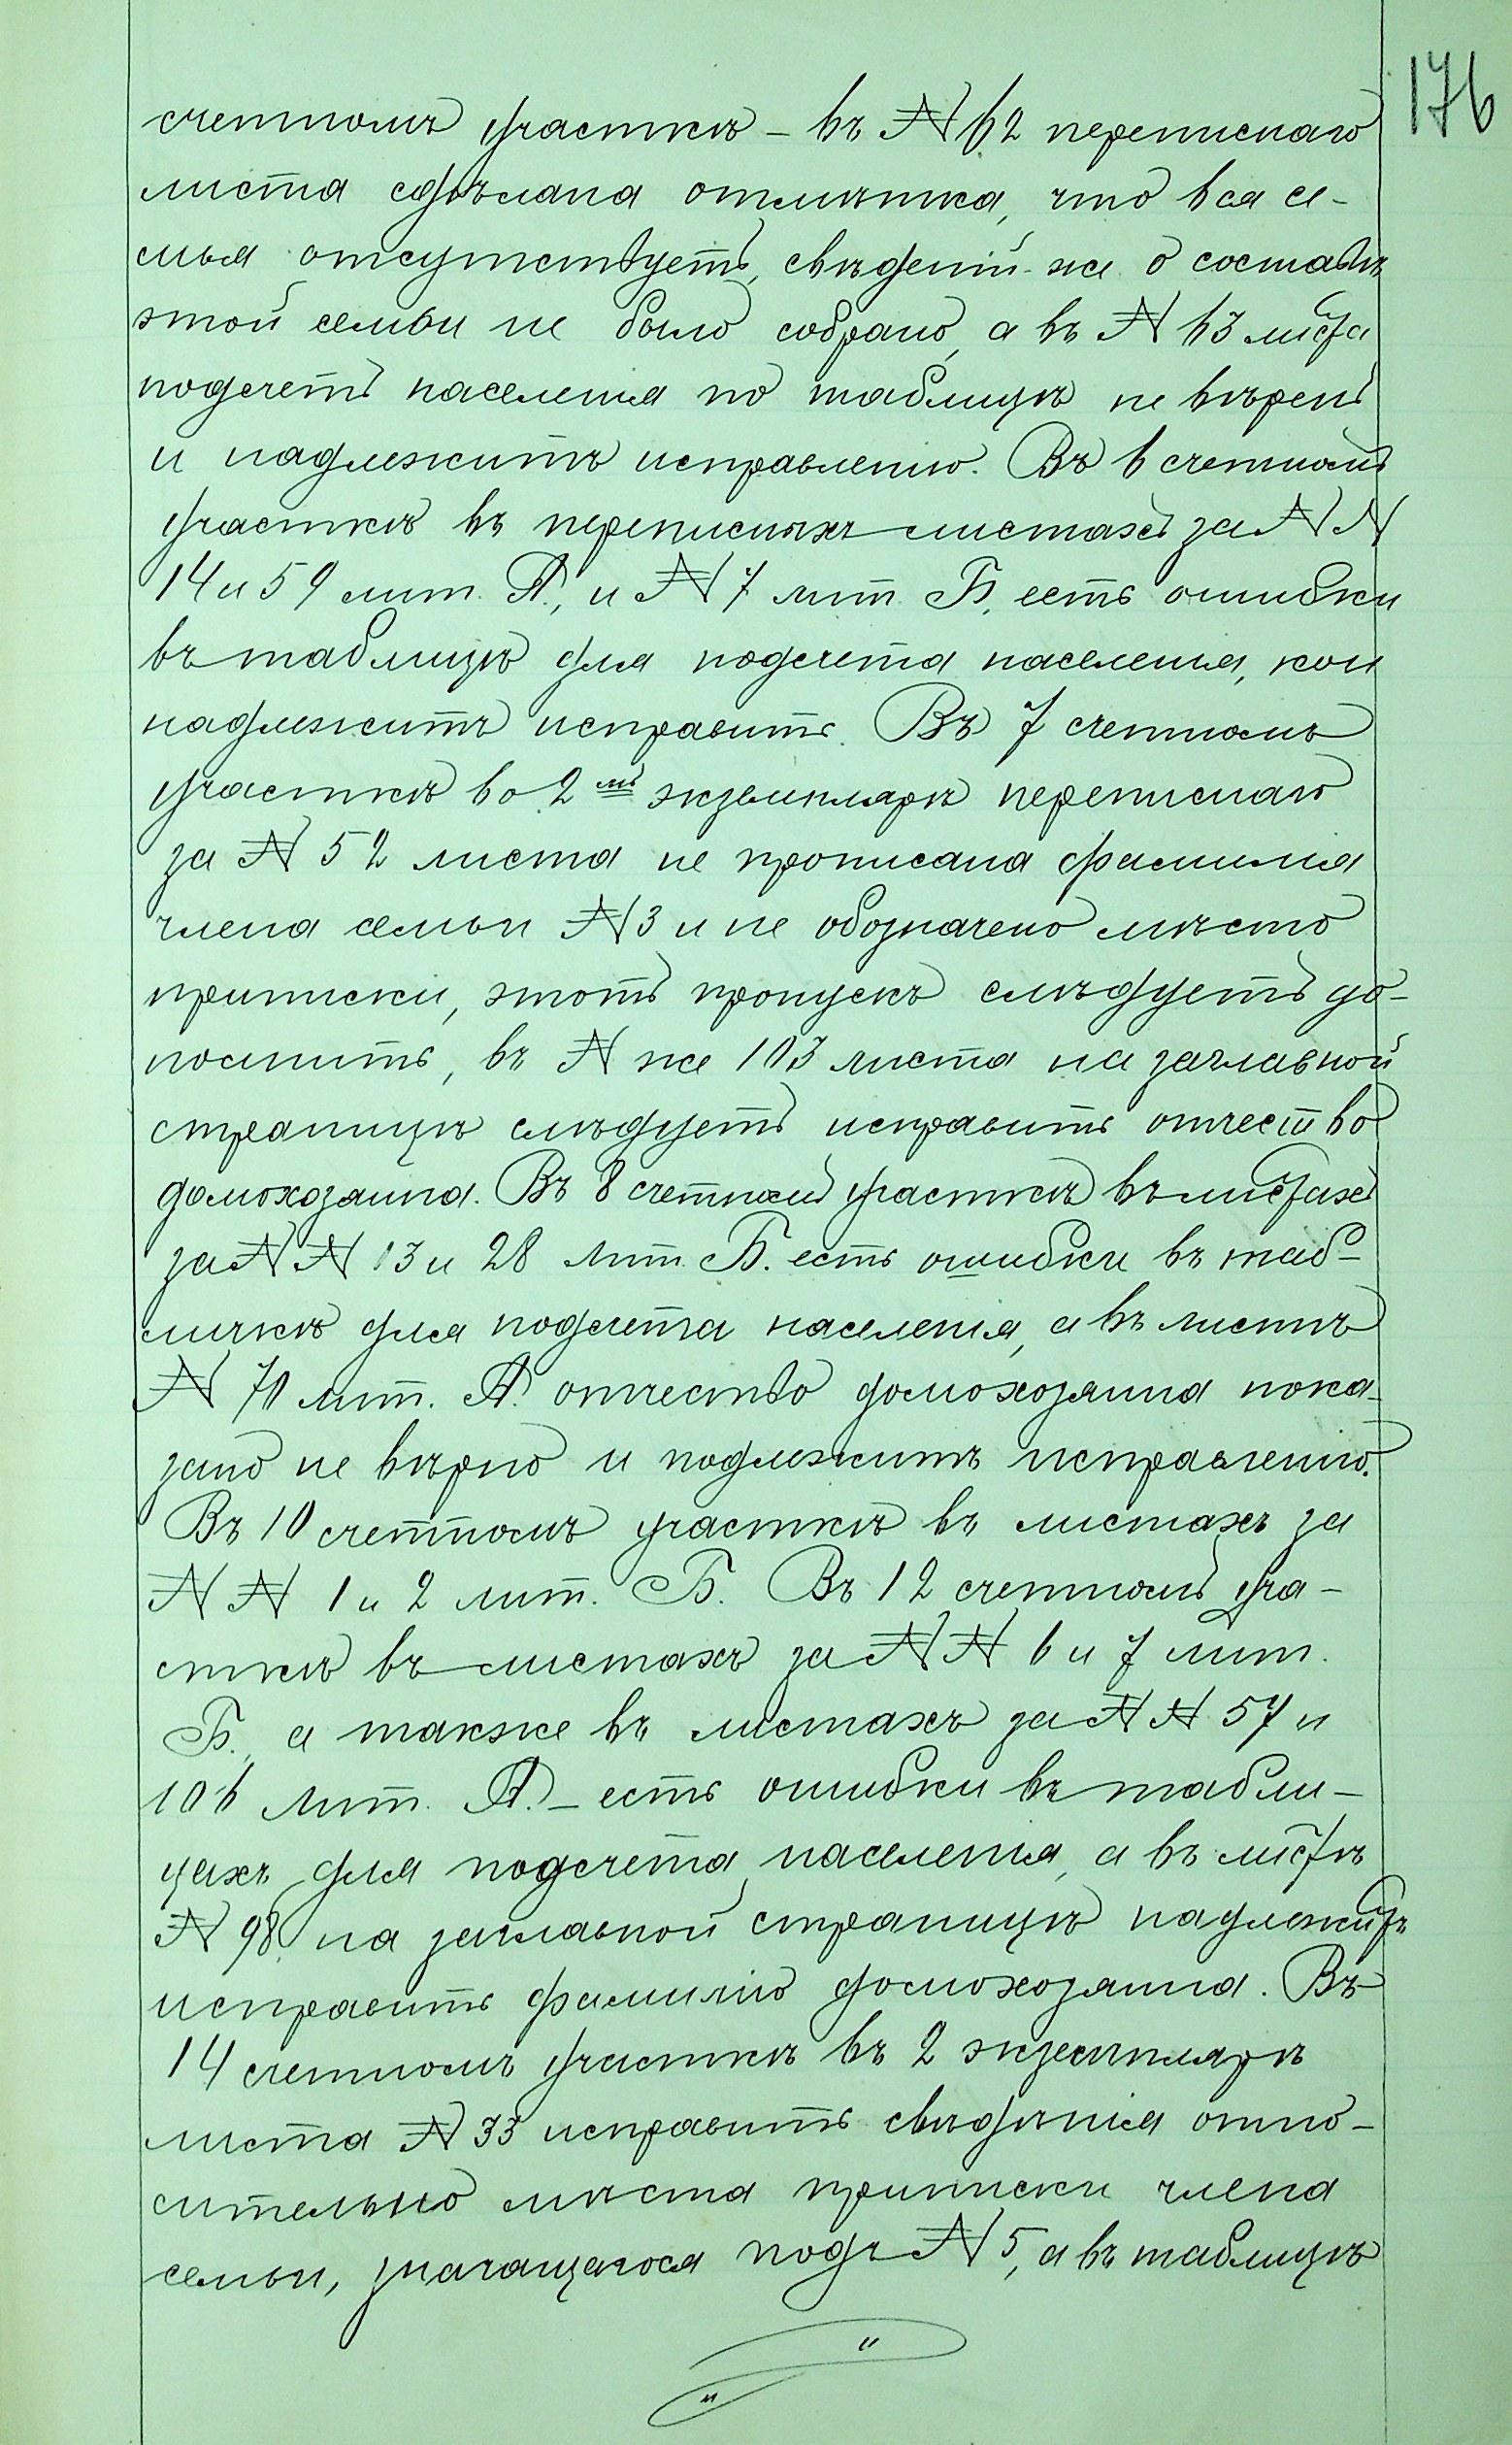 176
счетномъ участкѣ – въ № 62 переписнаго
листа сдѣлана отмѣтка, что вся се-
мья отсутствуетъ, свѣденій же о составѣ
этой семьи не было собрано, а въ № 63 листа
подсчетъ населенія по таблицѣ не вѣренъ
и надлежитъ исправленію. Въ 6 счетномъ
участкѣ въ переписныхъ листахъ за №№
14 и 59 лит. А., и № 7 лит. Б. есть ошибки
въ таблицѣ для подсчета населенія, кои
надлежитъ исправить. Въ 7 счетномъ
участкѣ во 2мъ экземплярѣ переписнаго
за № 52 листа не прописана фамилія
члена семьи № 3 и не обозначено мѣсто
приписки, этотъ пропускъ слѣдуетъ до-
полнить, въ № же 103 листа на заглавной
страницѣ слѣдуетъ исправить отчество
домохозяина. Въ 8 счетномъ участкѣ въ листахъ
за №№ 13 и 28 лит. Б. есть ошибки въ таб-
личкѣ для подсчета населенія, а въ листѣ
№ 70 лит. А. отчество домохозяина пока-
зано не вѣрно и подлежитъ исправленію.
Въ 10 счетномъ участкѣ въ листахъ за
№№ 1 и 2 лит. Б. Въ 12 счетномъ уча-
сткѣ въ листахъ за №№ 6 и 7 лит.
Б., а также въ листахъ за №№ 57 и
106 лит. А. – есть ошибки въ табли-
цахъ для подсчета населенія, а въ листѣ
№ 98 на заглавной страницѣ надлежитъ
исправить фамилію домохозяина. Въ
14 счетномъ участкѣ въ 2 экземплярѣ
листа № 33 исправить свѣдѣнія отно-
сительно мѣста приписки члена
семьи, значащагося подъ № 5, а въ таблицѣ